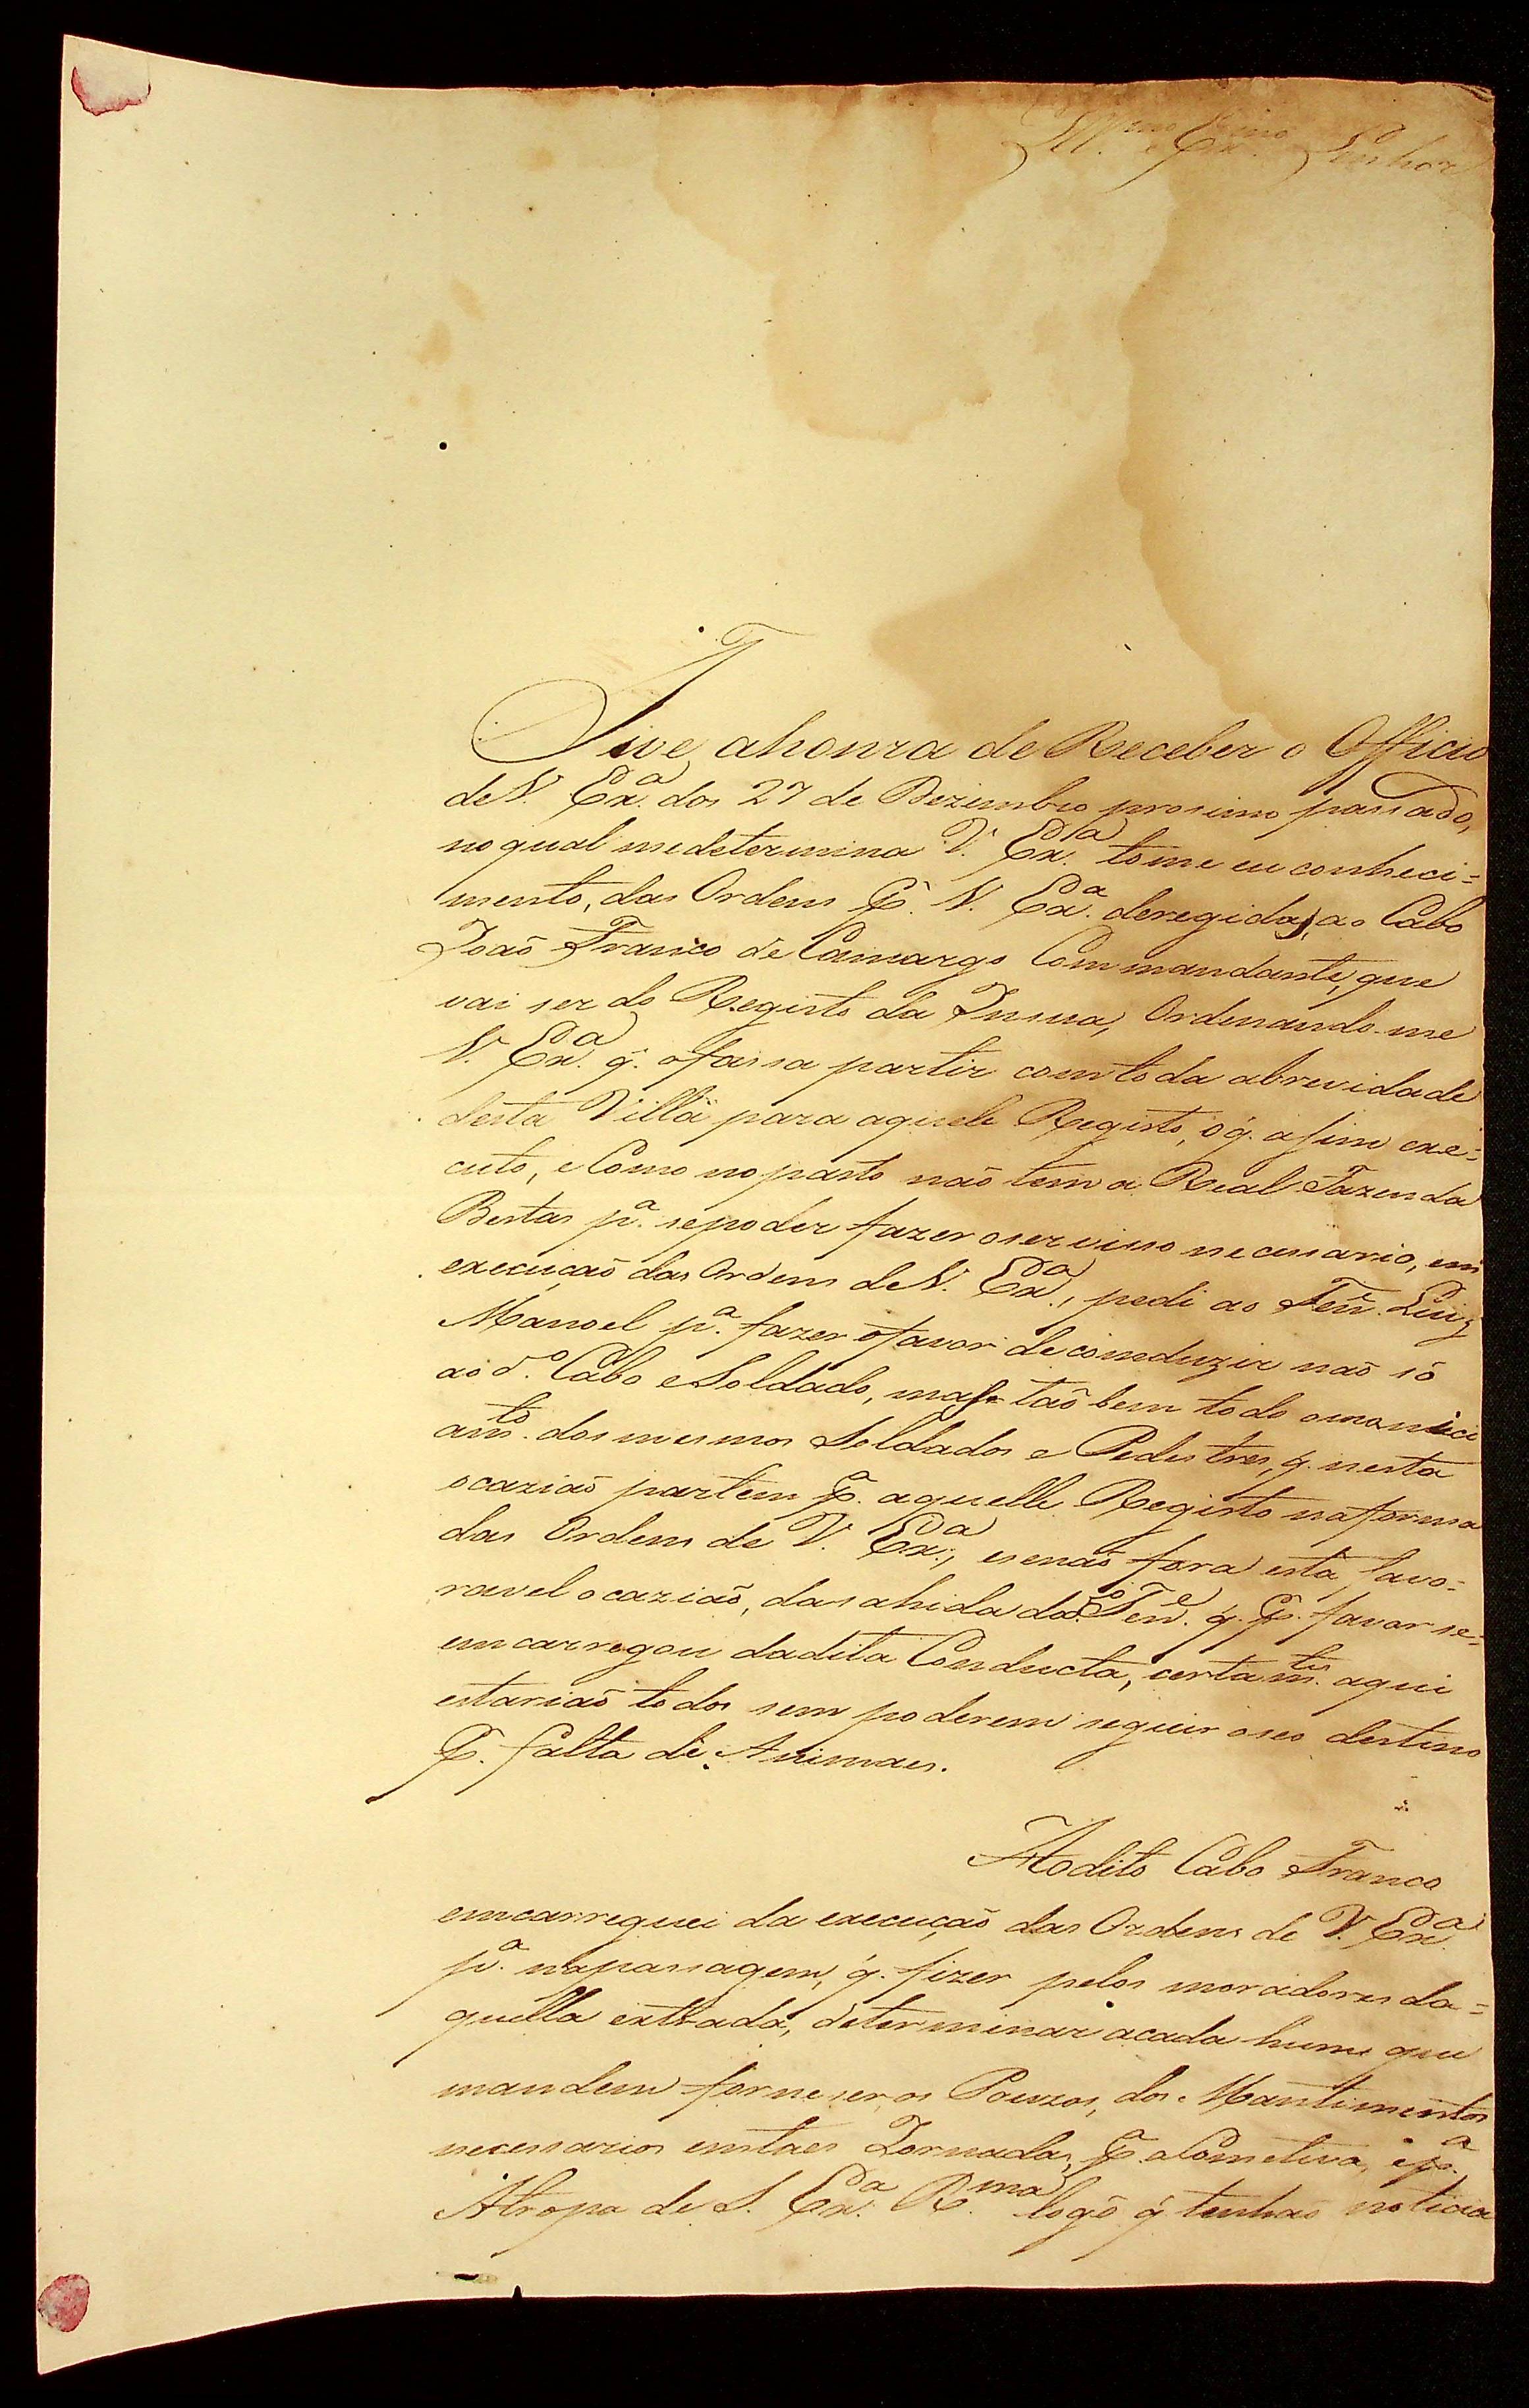 Ill.mo e Ex.mo Senhor
Tive ahonra de Receber o Officio
de V. Ex.a dos 27 de Dezimbro prosimo passado,
no qual medetermina V. Ex.a tome eu conheci=
mento, das Ordens q̃. V. Ex.a deregidas, ao Cabo
Joaõ Franco de Camargo Commandante, que
vai ser do Registo da Insua, Ordenando-me
V. Ex.a q̃. ofassa partir comtoda abrevidade
desta Villa para aquele Registo, o q̃. asim exe=
cuto, e Como no pasto naõ tem a Real Fazenda
Bestas p.a sepoder fazer oserviso necessario, em
execuçaõ das Ordens de V. Ex.a, pedi ao Ten. Luiz
Manoel p.a fazer ofavor deconduzir naõ só
ao d.o Cabo e Soldado, mas taõ bem todo omonici
am.to dos mesmos Soldados e Pedestres, q̃. nesta
ocaziaõ partem p.a aquelle Registo naforma
das Ordens de V. Ex.a, esenaõ fora esta favo=
ravel ocaziaõ, dasahida do d.o Ten.e q̃. p.r favor se=
emcarregou dadita Conducta, certam.te aqui
estariaõ todos sem poderem seguir oseo destino
p.r falta de Animaes.
Aodito Cabo Franco
emcarreguei da execuçaõ das Ordens de V. Ex.a
p.a napassagem, q̃. fizer pelos moradores da=
quella estrada, determinar acada hum que
mandem forneser os Pouzos, dos Mantimentos
necessarios emtaes Jornadas, p.a aCometiva, e p.a
Atropa de S. Ex.a R.ma logo q̃ tenhaõ noticia